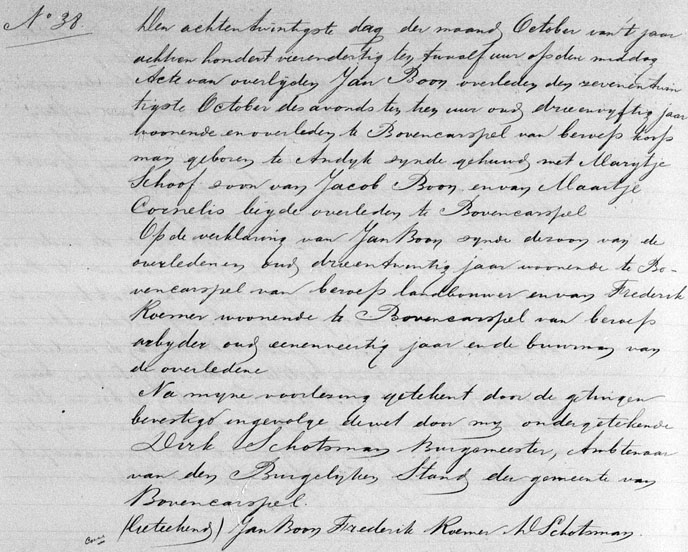 No 38.
Den achtentwintigste dag der maand October van't jaar
achtien hondert vierendertig ten twaalf uur op den middag
Acte van overlyden Jan Boon overleden den zevenentwin
tigste October des avonds ten tien uur oud drieenvyftig jaar
woonende en overleden te Bovencarspel van beroep koop
man geboren te Andyk synde gehuwd met Marytje
Schoof soon van Jacob Boon en van Maartje
Cornelis beyde overleden te Bovencarspel
Op de verklaring van Jan Boon synde de soon van de
overledenen oud drieentwintig jaar woonende te Bo-
vencarspel van beroep landbouwer en van Frederik
Roemer woonende te Bovencarspel van beroep
arbyder oud eenenveertig jaar en de buurman van
de overledene
Na myne voorlesing getekent door de getuigen
bevestigd ingevolge de wet door my ondergetekende
Dirk Schotsman Burgemeester, Ambtenaar
van den Burgelyken Stand der gemeente van
Bovencarspel.
(Geteekend) Jan Boon Frederik Roemer D Schotsman.